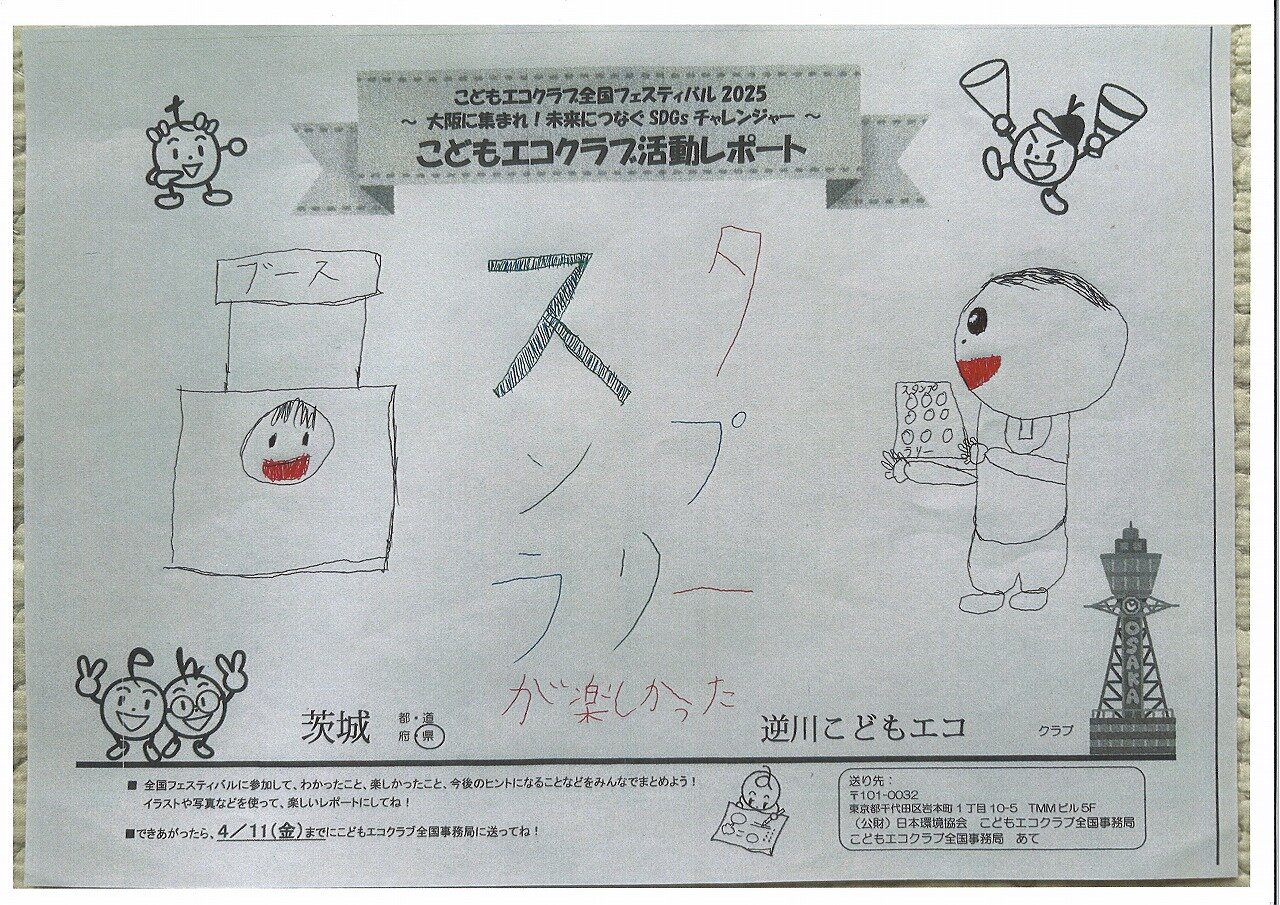 こどもエコクラブ全国フェスティバル 2025
～ 大阪に集まれ！未来につなぐ SDGs チャレンジャー ～
こどもエコクラブ活動レポート
ブース
スタ
ンプ
ラリー
が楽しかった
スタンプ
ラリー
OSAKA
茨城
都・道
府・県
逆川こどもエコ
クラブ
■ 全国フェスティバルに参加して、わかったこと、楽しかったこと、今後のヒントになることなどをみんなでまとめよう！
イラストや写真などを使って、楽しいレポートにしてね！
■できあがったら、4／11（金）までにこどもエコクラブ全国事務局に送ってね！
送り先：
〒101-0032
東京都千代田区岩本町１丁目10-5　TMMビル5F
（公財）日本環境協会　こどもエコクラブ全国事務局
こどもエコクラブ全国事務局　あて